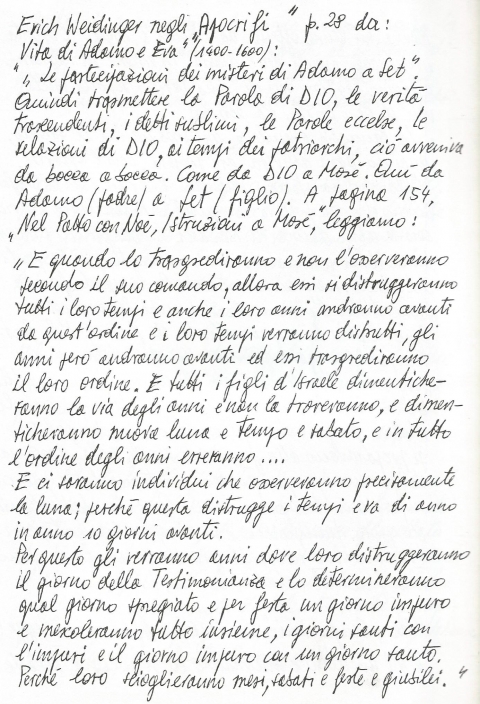 Erich Weidinger negli „Apocrifi" p. 28 da:
Vita di Adamo e Eva" (1400-1600):
"„ Le partecipazioni dei misteri di Adamo a Set".
Quindi trasmettere la Parola di DIO, le verità
trascendenti, i detti sublimi, le Parole eccelse, le
relazioni di DIO, ai tempi dei patriarchi, ciò avveniva
da bocca a bocca. Come da DIO a Mosè. Qui da
Adamo (padre) a Set (figlio). A pagina 154,
„Nel Patto con Noè, Istruzioni a Mosè," leggiamo:
„ E quando lo trasgrediranno e non l'osserveranno
secondo il suo comando, allora essi si distruggeranno
tutti i loro tempi e anche i loro anni andranno avanti
da quest'ordine e i loro tempi verranno distrutti, gli
anni però andranno avanti ed essi trasgrediranno
il loro ordine. E tutti i figli d'Israele dimentiche-
ranno la via degli anni e non la troveranno, e dimen-
ticheranno nuova luna e tempo e sabato, e in tutto
l'ordine degli anni erreranno ....
E ci saranno individui che osserveranno precisamente
la luna; perché questa distrugge i tempi e va di anno
in anno 10 giorni avanti.
Per questo gli verranno anni dove loro distruggeranno
il giorno della Testimonianza e lo determineranno
qual giorno spregiato e per festa un giorno impuro
e mescoleranno tutto insieme, i giorni santi con
l'impuri e il giorno impuro con un giorno santo.
Perché loro scioglieranno mesi, sabati e feste e giubilei. "